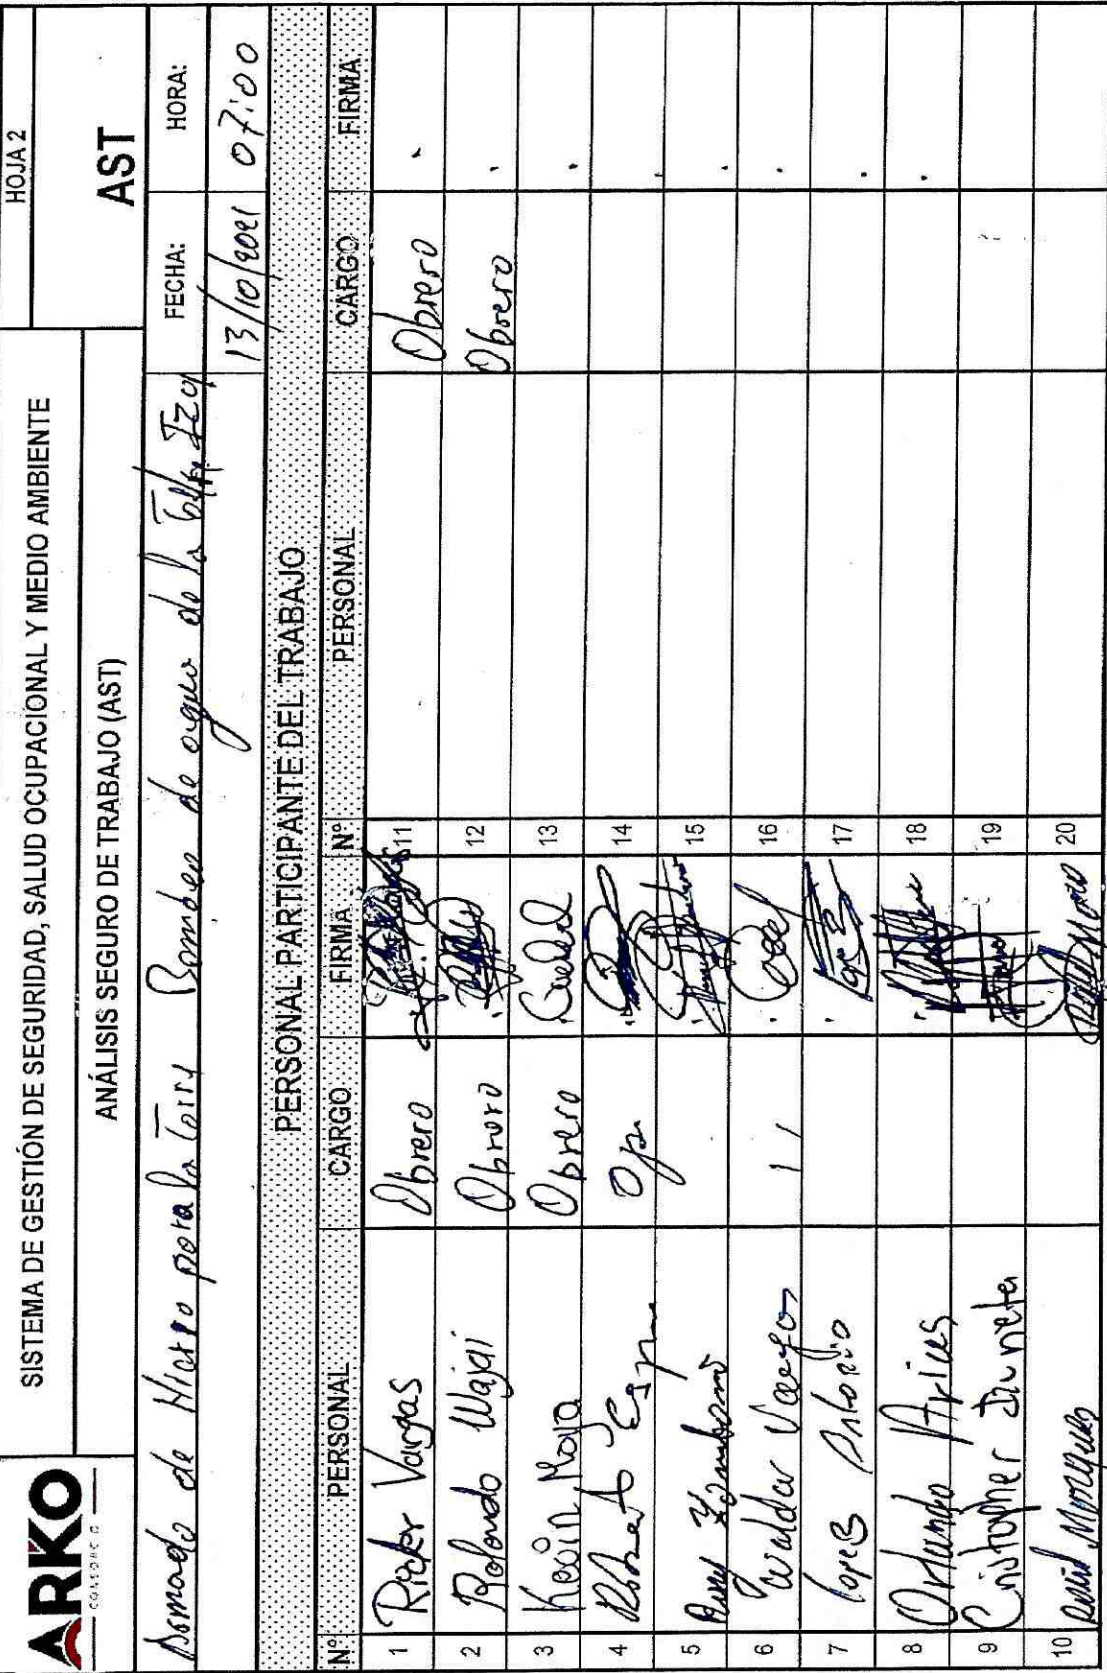 ARKO
CONSORCIO
SISTEMA DE GESTIÓN DE SEGURIDAD, SALUD OCUPACIONAL Y MEDIO AMBIENTE
HOJA 2
ANÁLISIS SEGURO DE TRABAJO (AST)
AST
Armado de Hierro para la Torre Bombeo de agua de la
FECHA:
HORA:
13/10/2021
07:00
PERSONAL PARTICIPANTE DEL TRABAJO
Nº PERSONAL CARGO FIRMA Nº PERSONAL CARGO FIRMA
1 Rider Vargas Obrero 11 Obrero
2 Rolando Wajai Obrero 12 Obrero
3 Kevin Moya Obrero 13
4 Robert Op 14
5 15
6 16
7 Lopez Antonio 17
8 Orlando Arias 18
9 19
10 20